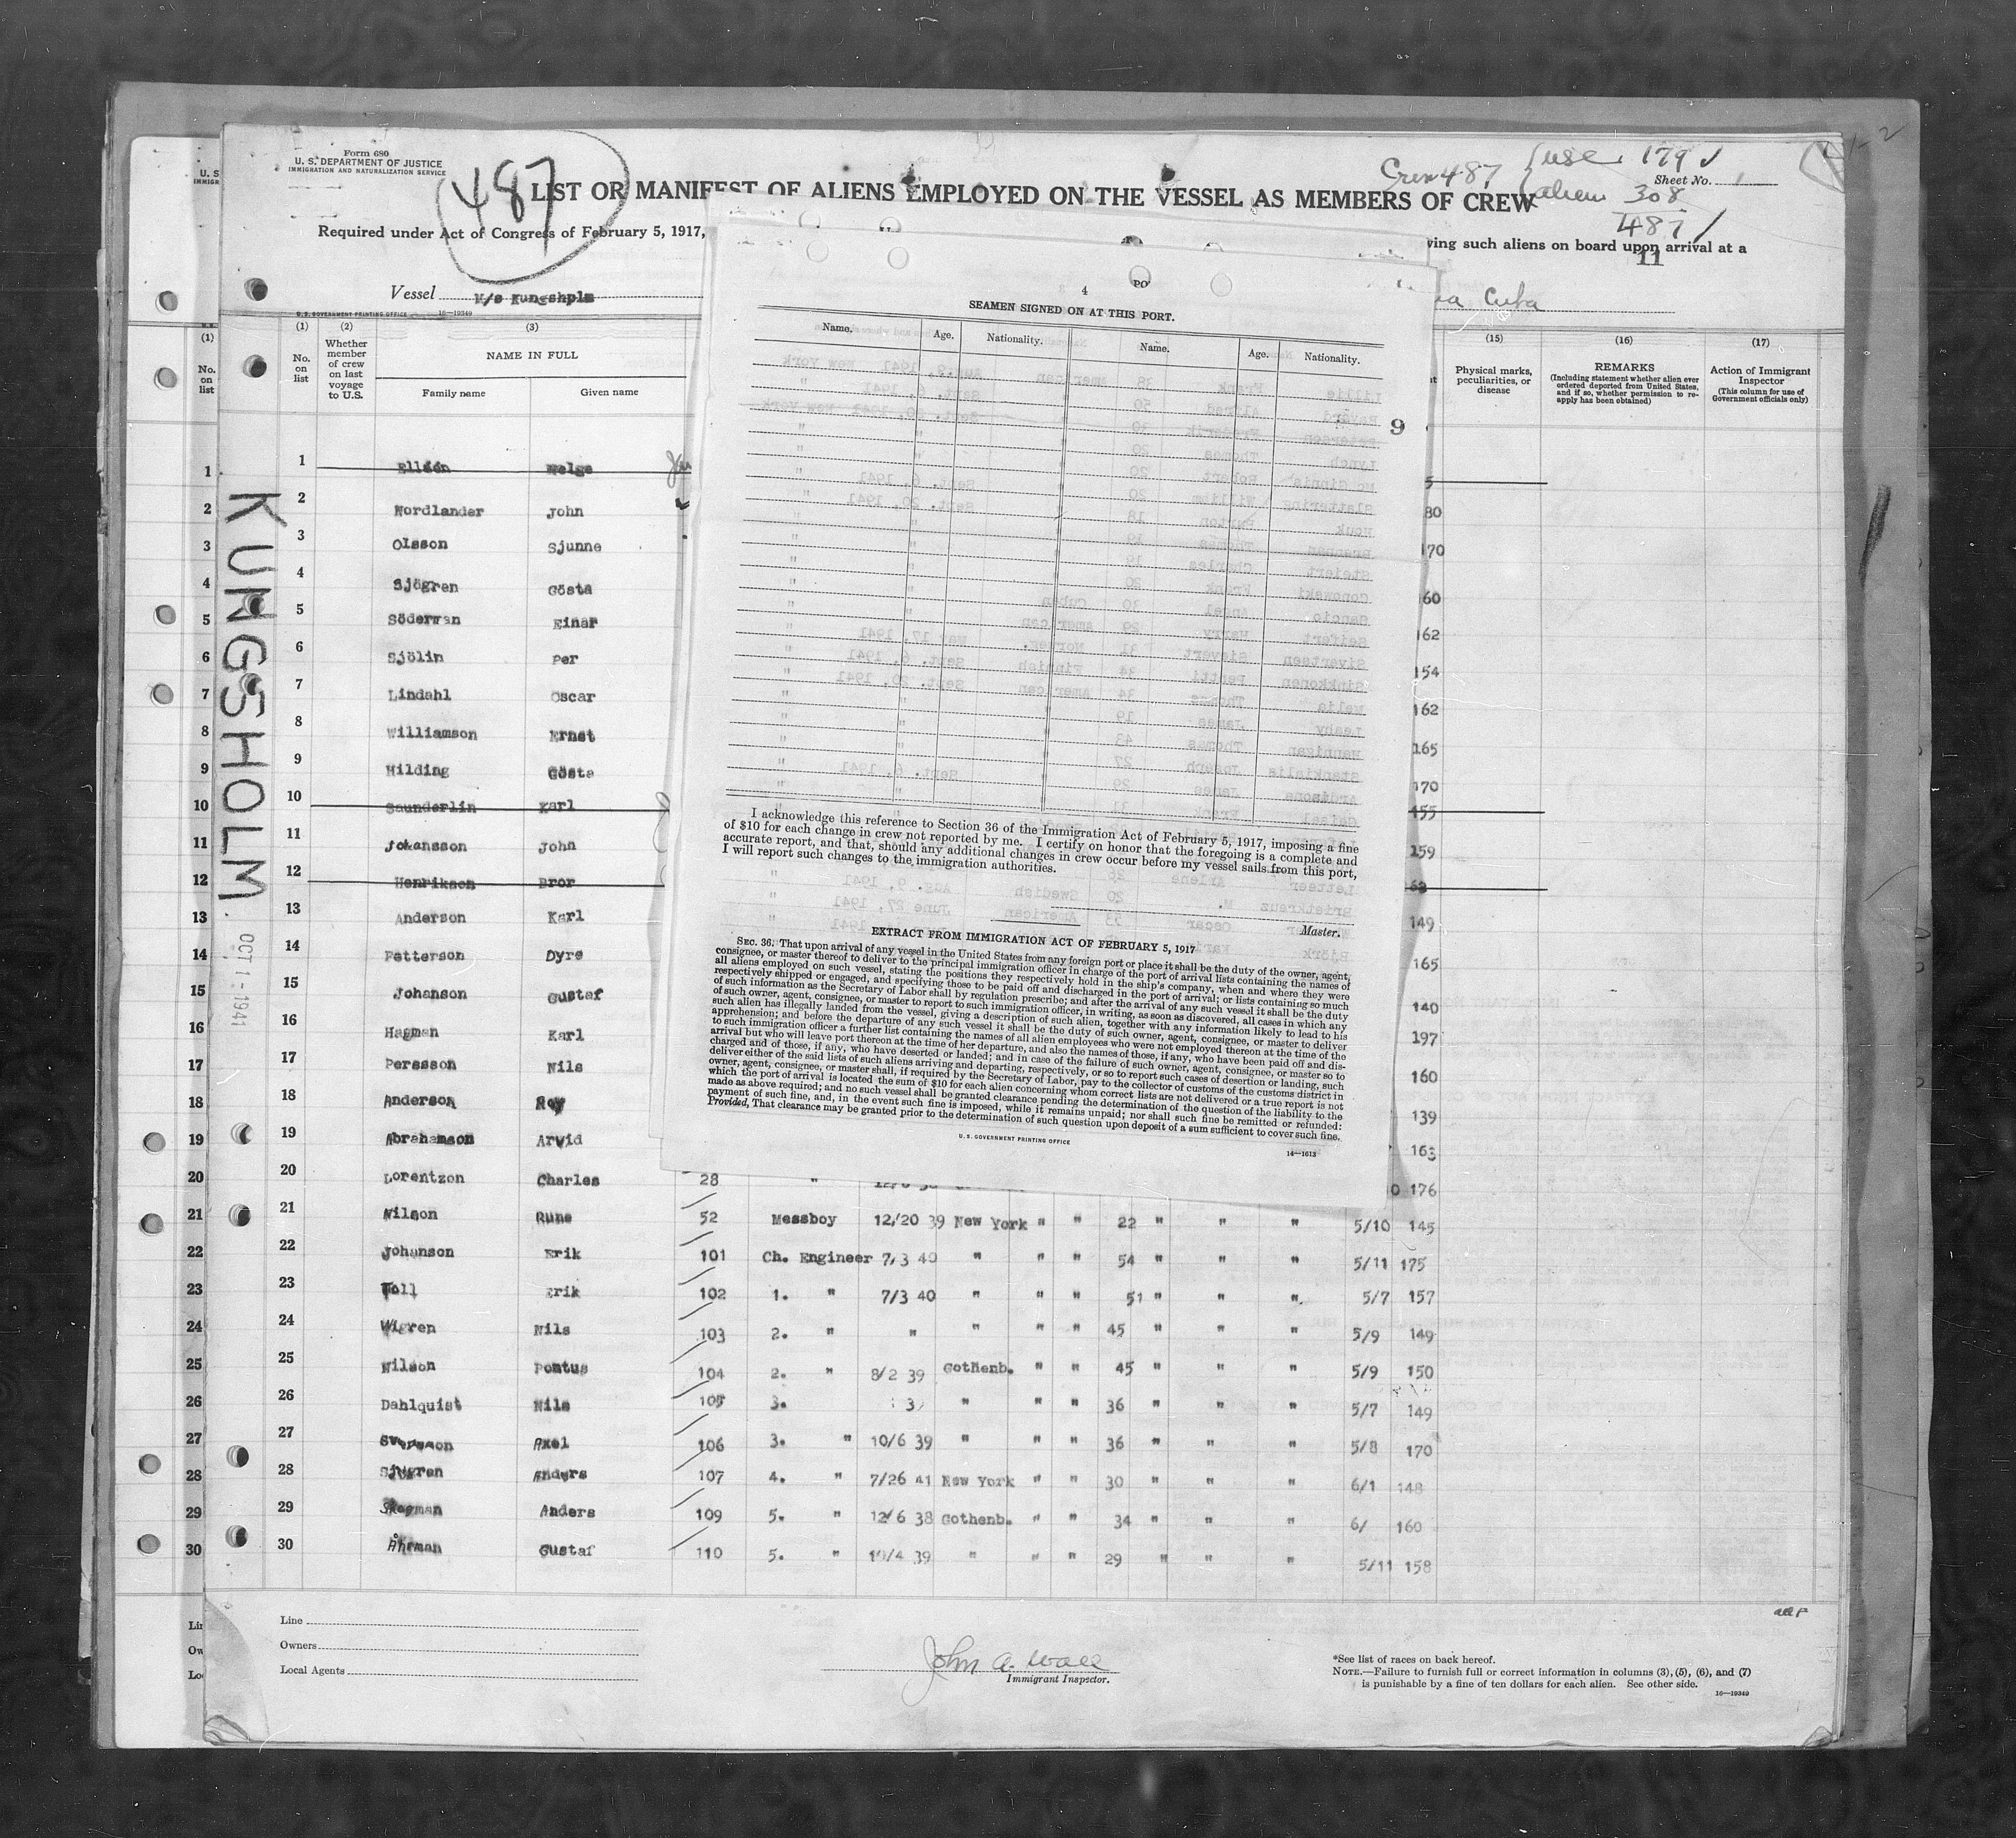 Form 680
U. S. DEPARTMENT OF JUSTICE
IMMIGRATION AND NATURALIZATION SERVICE
487
LIST OR MANIFEST OF ALIENS EMPLOYED ON THE VESSEL AS MEMBERS OF CREW
Crew 487
179 ✓
alien 308
487 /
Sheet No. 1
Required under Act of Congress of February 5, 1917,
ving such aliens on board upon arrival at a
11
Vessel M/s Kungsholm
Cuba
U. S. GOVERNMENT PRINTING OFFICE 16—19349
(1) (2) (3) (15) (16) (17)
No. on list
Whether member of crew on last voyage to U.S.
NAME IN FULL
Family name Given name
Physical marks, peculiarities, or disease
REMARKS
(Including statement whether alien ever ordered deported from United States, and if so, whether permission to reapply has been obtained)
Action of Immigrant Inspector
(This column for use of Government officials only)
KUNGSHOLM
OCT 1 - 1941
1 Helge
2 Nordlander John 80
3 Olsson Sjunne 170
4 Sjögren Gösta 60
5 Söderman Einar 162
6 Sjölin Per 154
7 Lindahl Oscar 162
8 Williamson Ernst 165
9 Hilding Gösta 170
10 Saunderlin Karl 155
11 Johansson John 159
12 Henrikson Bror
13 Anderson Karl 149
14 Petterson Dyre 165
15 Johanson Gustaf 140
16 Hagman Karl 197
17 Persson Nils 160
18 Anderson Roy 139
19 Abrahamson Arvid 163
20 Lorentzon Charles 28 " 176
21 Nilson Rune 52 Messboy 12/20 39 New York " " 22 " " " 5/10 145
22 Johanson Erik 101 Ch. Engineer 7/3 40 " " " 54 " " " 5/11 175
23 Toll Erik 102 1. " 7/3 40 " " " 51 " " " 5/7 157
24 Wigren Nils 103 2. " " " " " 45 " " " 5/9 149
25 Nilson Pontus 104 2. " 8/2 39 Gothenb. " " 45 " " " 5/9 150
26 Dahlquist Nils 105 3. " " " 36 " " " 5/7 149
27 Svensson Axel 106 3. " 10/6 39 " " " 36 " " " 5/8 170
28 Sjögren Anders 107 4. " 7/26 41 New York " " 30 " " " 6/1 148
29 Skogman Anders 109 5. " 12/6 38 Gothenb. " " 34 " " " 6/ 160
30 Åhrman Gustaf 110 5. " 10/4 39 " " " 29 " " " 5/11 158
4
SEAMEN SIGNED ON AT THIS PORT.
Name. Age. Nationality. Name. Age. Nationality.
9
I acknowledge this reference to Section 36 of the Immigration Act of February 5, 1917, imposing a fine
of $10 for each change in crew not reported by me. I certify on honor that the foregoing is a complete and
accurate report, and that, should any additional changes in crew occur before my vessel sails from this port,
I will report such changes to the immigration authorities.
Master.
EXTRACT FROM IMMIGRATION ACT OF FEBRUARY 5, 1917
SEC. 36. That upon arrival of any vessel in the United States from any foreign port or place it shall be the duty of the owner, agent,
consignee, or master thereof to deliver to the principal immigration officer in charge of the port of arrival lists containing the names of
all aliens employed on such vessel, stating the positions they respectively hold in the ship's company, when and where they were
respectively shipped or engaged, and specifying those to be paid off and discharged in the port of arrival; or lists containing so much
of such information as the Secretary of Labor shall by regulation prescribe; and after the arrival of any such vessel it shall be the duty
of such owner, agent, consignee, or master to report to such immigration officer, in writing, as soon as discovered, all cases in which any
such alien has illegally landed from the vessel, giving a description of such alien, together with any information likely to lead to his
apprehension; and before the departure of any such vessel it shall be the duty of such owner, agent, consignee, or master to deliver
to such immigration officer a further list containing the names of all alien employees who were not employed thereon at the time of the
arrival but who will leave port thereon at the time of her departure, and also the names of those, if any, who have been paid off and dis-
charged and of those, if any, who have deserted or landed; and in case of the failure of such owner, agent, consignee, or master so to
deliver either of the said lists of such aliens arriving and departing, respectively, or so to report such cases of desertion or landing, such
owner, agent, consignee, or master shall, if required by the Secretary of Labor, pay to the collector of customs of the customs district in
which the port of arrival is located the sum of $10 for each alien concerning whom correct lists are not delivered or a true report is not
made as above required; and no such vessel shall be granted clearance pending the determination of the question of the liability to the
payment of such fine, and, in the event such fine is imposed, while it remains unpaid; nor shall such fine be remitted or refunded:
Provided, That clearance may be granted prior to the determination of such question upon deposit of a sum sufficient to cover such fine.
U. S. GOVERNMENT PRINTING OFFICE
14—1613
Line
Owners
Local Agents
John A. Wall
Immigrant Inspector.
*See list of races on back hereof.
NOTE.—Failure to furnish full or correct information in columns (3), (5), (6), and (7)
is punishable by a fine of ten dollars for each alien. See other side.
16—19349